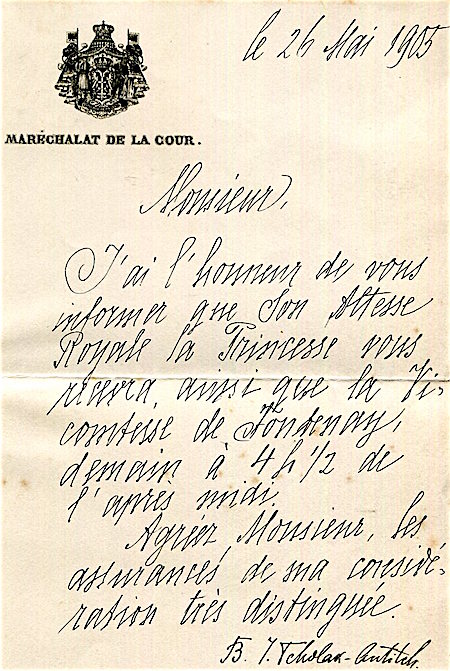 le 26 Mai 1905
MARÉCHALAT DE LA COUR.
Monsieur,
J'ai l'honneur de vous
informer que Son Altesse
Royale la Princesse vous
recevra, ainsi que la Vi-
comtesse de Fontenay,
demain à 4 h 1/2 de
l'après midi.
Agréez, Monsieur, les
assurances de ma considé-
ration très distinguée.
B. I. Tcholak-Antitch.